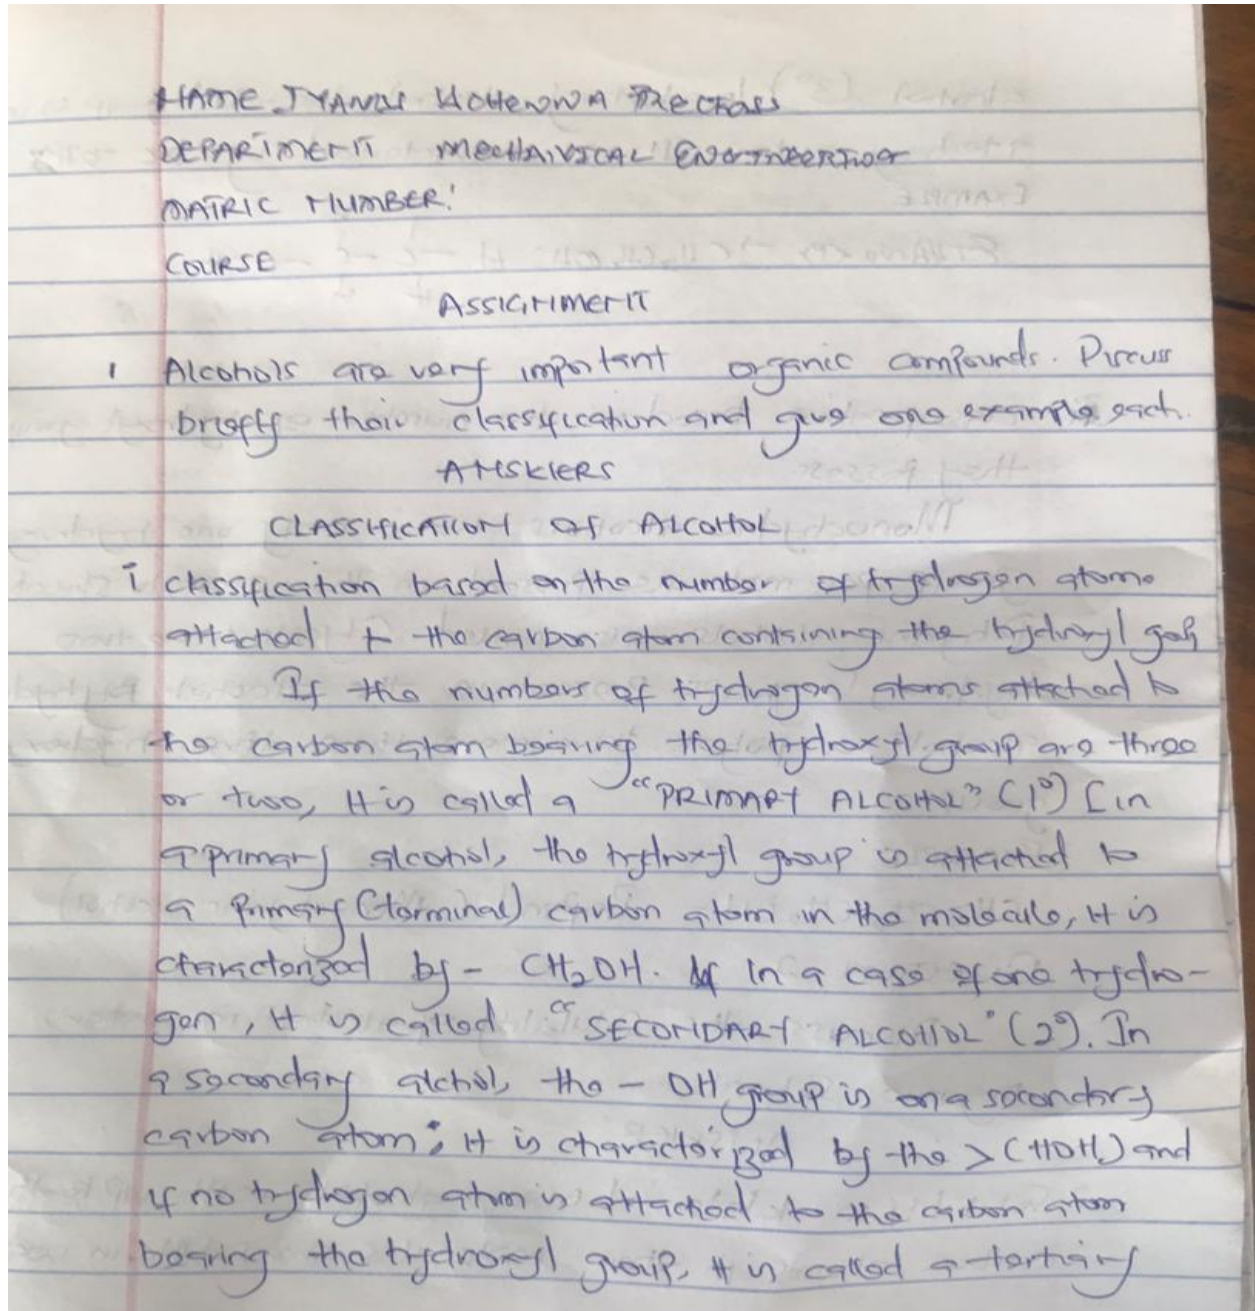 NAME
DEPARTMENT MECHANICAL ENGINEERING
MATRIC NUMBER:
COURSE
ASSIGNMENT
1 Alcohols are very important organic compounds. Discuss
briefly their classification and give one example each.
ANSWERS
CLASSIFICATION OF ALCOHOL
i classification based on the number of hydrogen atoms
attached to the carbon atom containing the hydroxyl
If the numbers of hydrogen atoms attached to
the carbon atom bearing the hydroxyl group are three
or two, it is called a "PRIMARY ALCOHOL" (1°) [in
a primary alcohol, the hydroxyl group is attached to
a primary (terminal) carbon atom in the molecule, it is
characterized by - CH₂OH. In a case of one hydro-
gen, it is called "SECONDARY ALCOHOL" (2°). In
a secondary alchol, the - OH group is on a secondary
carbon atom; it is characterized by the >CHOH) and
if no hydrogen atom is attached to the carbon atom
bearing the hydroxyl group, it is called a tertiary